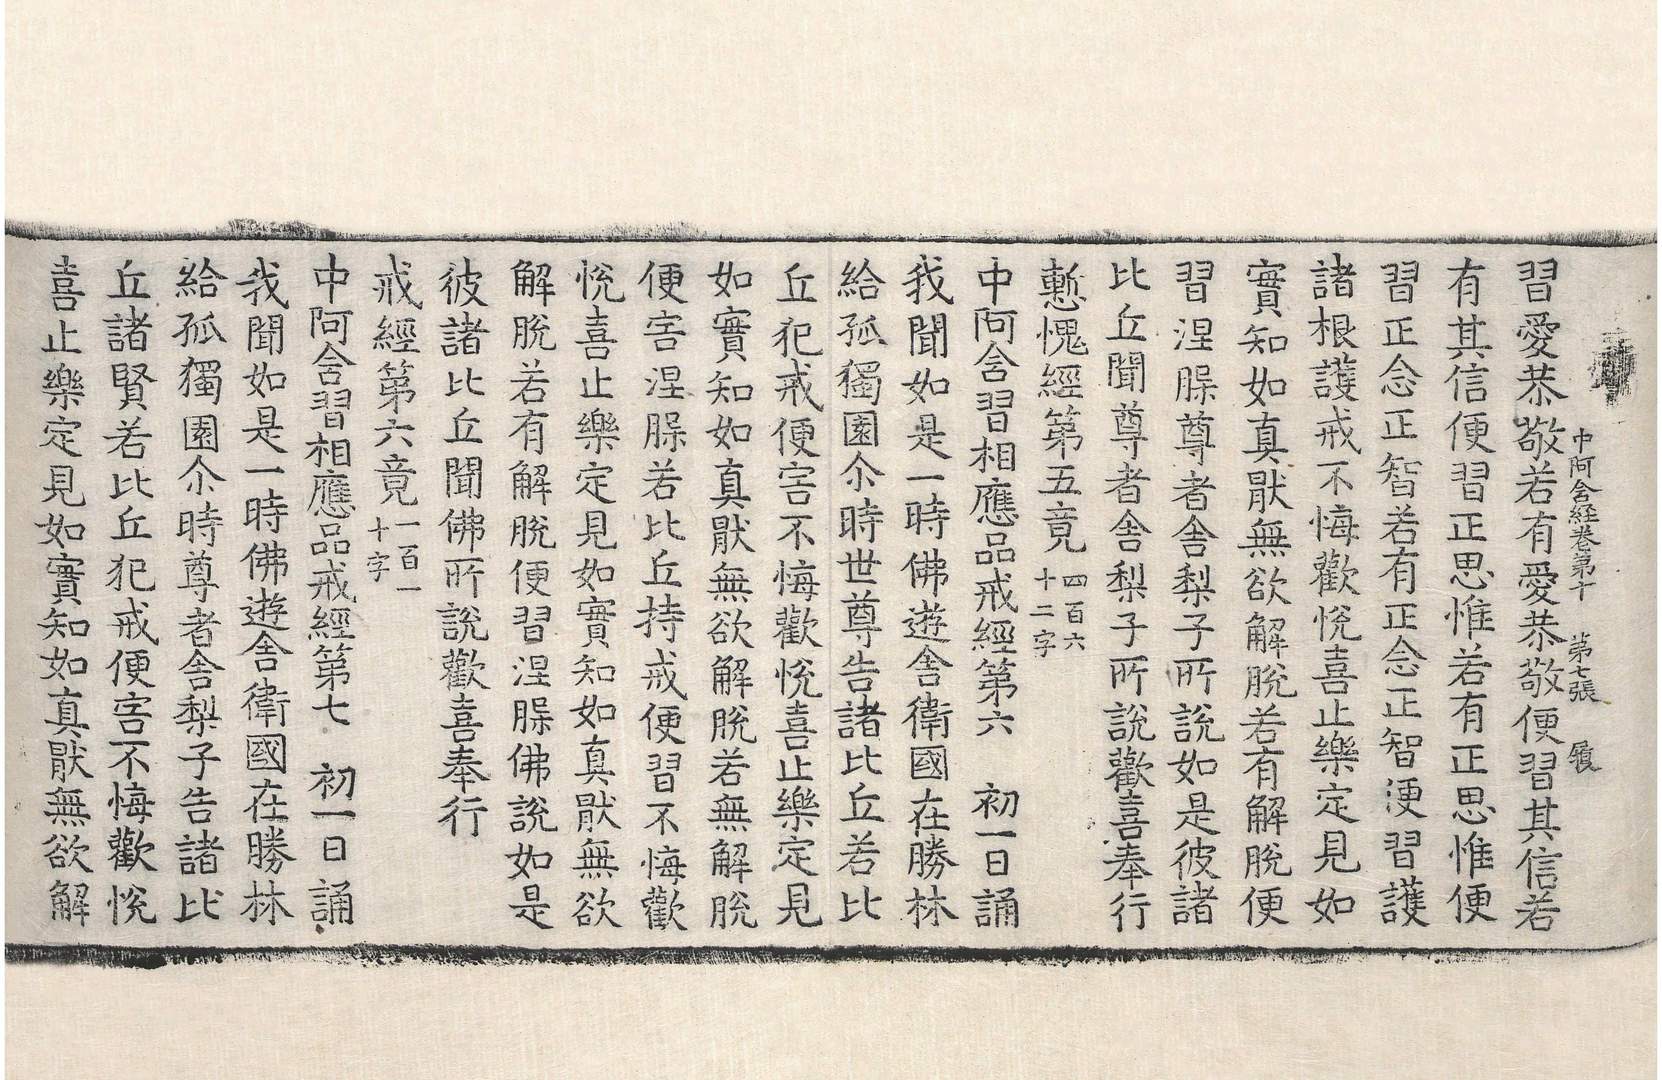 中阿含経卷第十　第七張　履
習愛恭敬若有愛恭敬便習其信若
有其信便習正思惟若有正思惟便
習正念正智若有正念正智便習護
諸根護戒不悔歡悅喜止樂定見如
實知如真猒無欲解脫若有解脫便
習涅槃尊者舎梨子所說如是彼諸
比丘聞尊者舎梨子所說歡喜奉行
慙愧經第五竟四百六十二字
中阿含習相應品戒經第六　初一日誦
我聞如是一時佛遊舎衛國在勝林
給孤獨園尒時世尊告諸比丘若比
丘犯戒便害不悔歡悅喜止樂定見
如實知如真猒無欲解脫若無解脫
便害涅槃若比丘持戒便習不悔歡
悅喜止樂定見如實知如真猒無欲
解脫若有解脫便習涅槃佛說如是
彼諸比丘聞佛所說歡喜奉行
戒經第六竟一百一十字
中阿含習相應品戒經第七　初一日誦
我聞如是一時佛遊舎衛國在勝林
給孤獨園尒時尊者舎梨子告諸比
丘諸賢若比丘犯戒便害不悔歡悅
喜止樂定見如實知如真猒無欲解